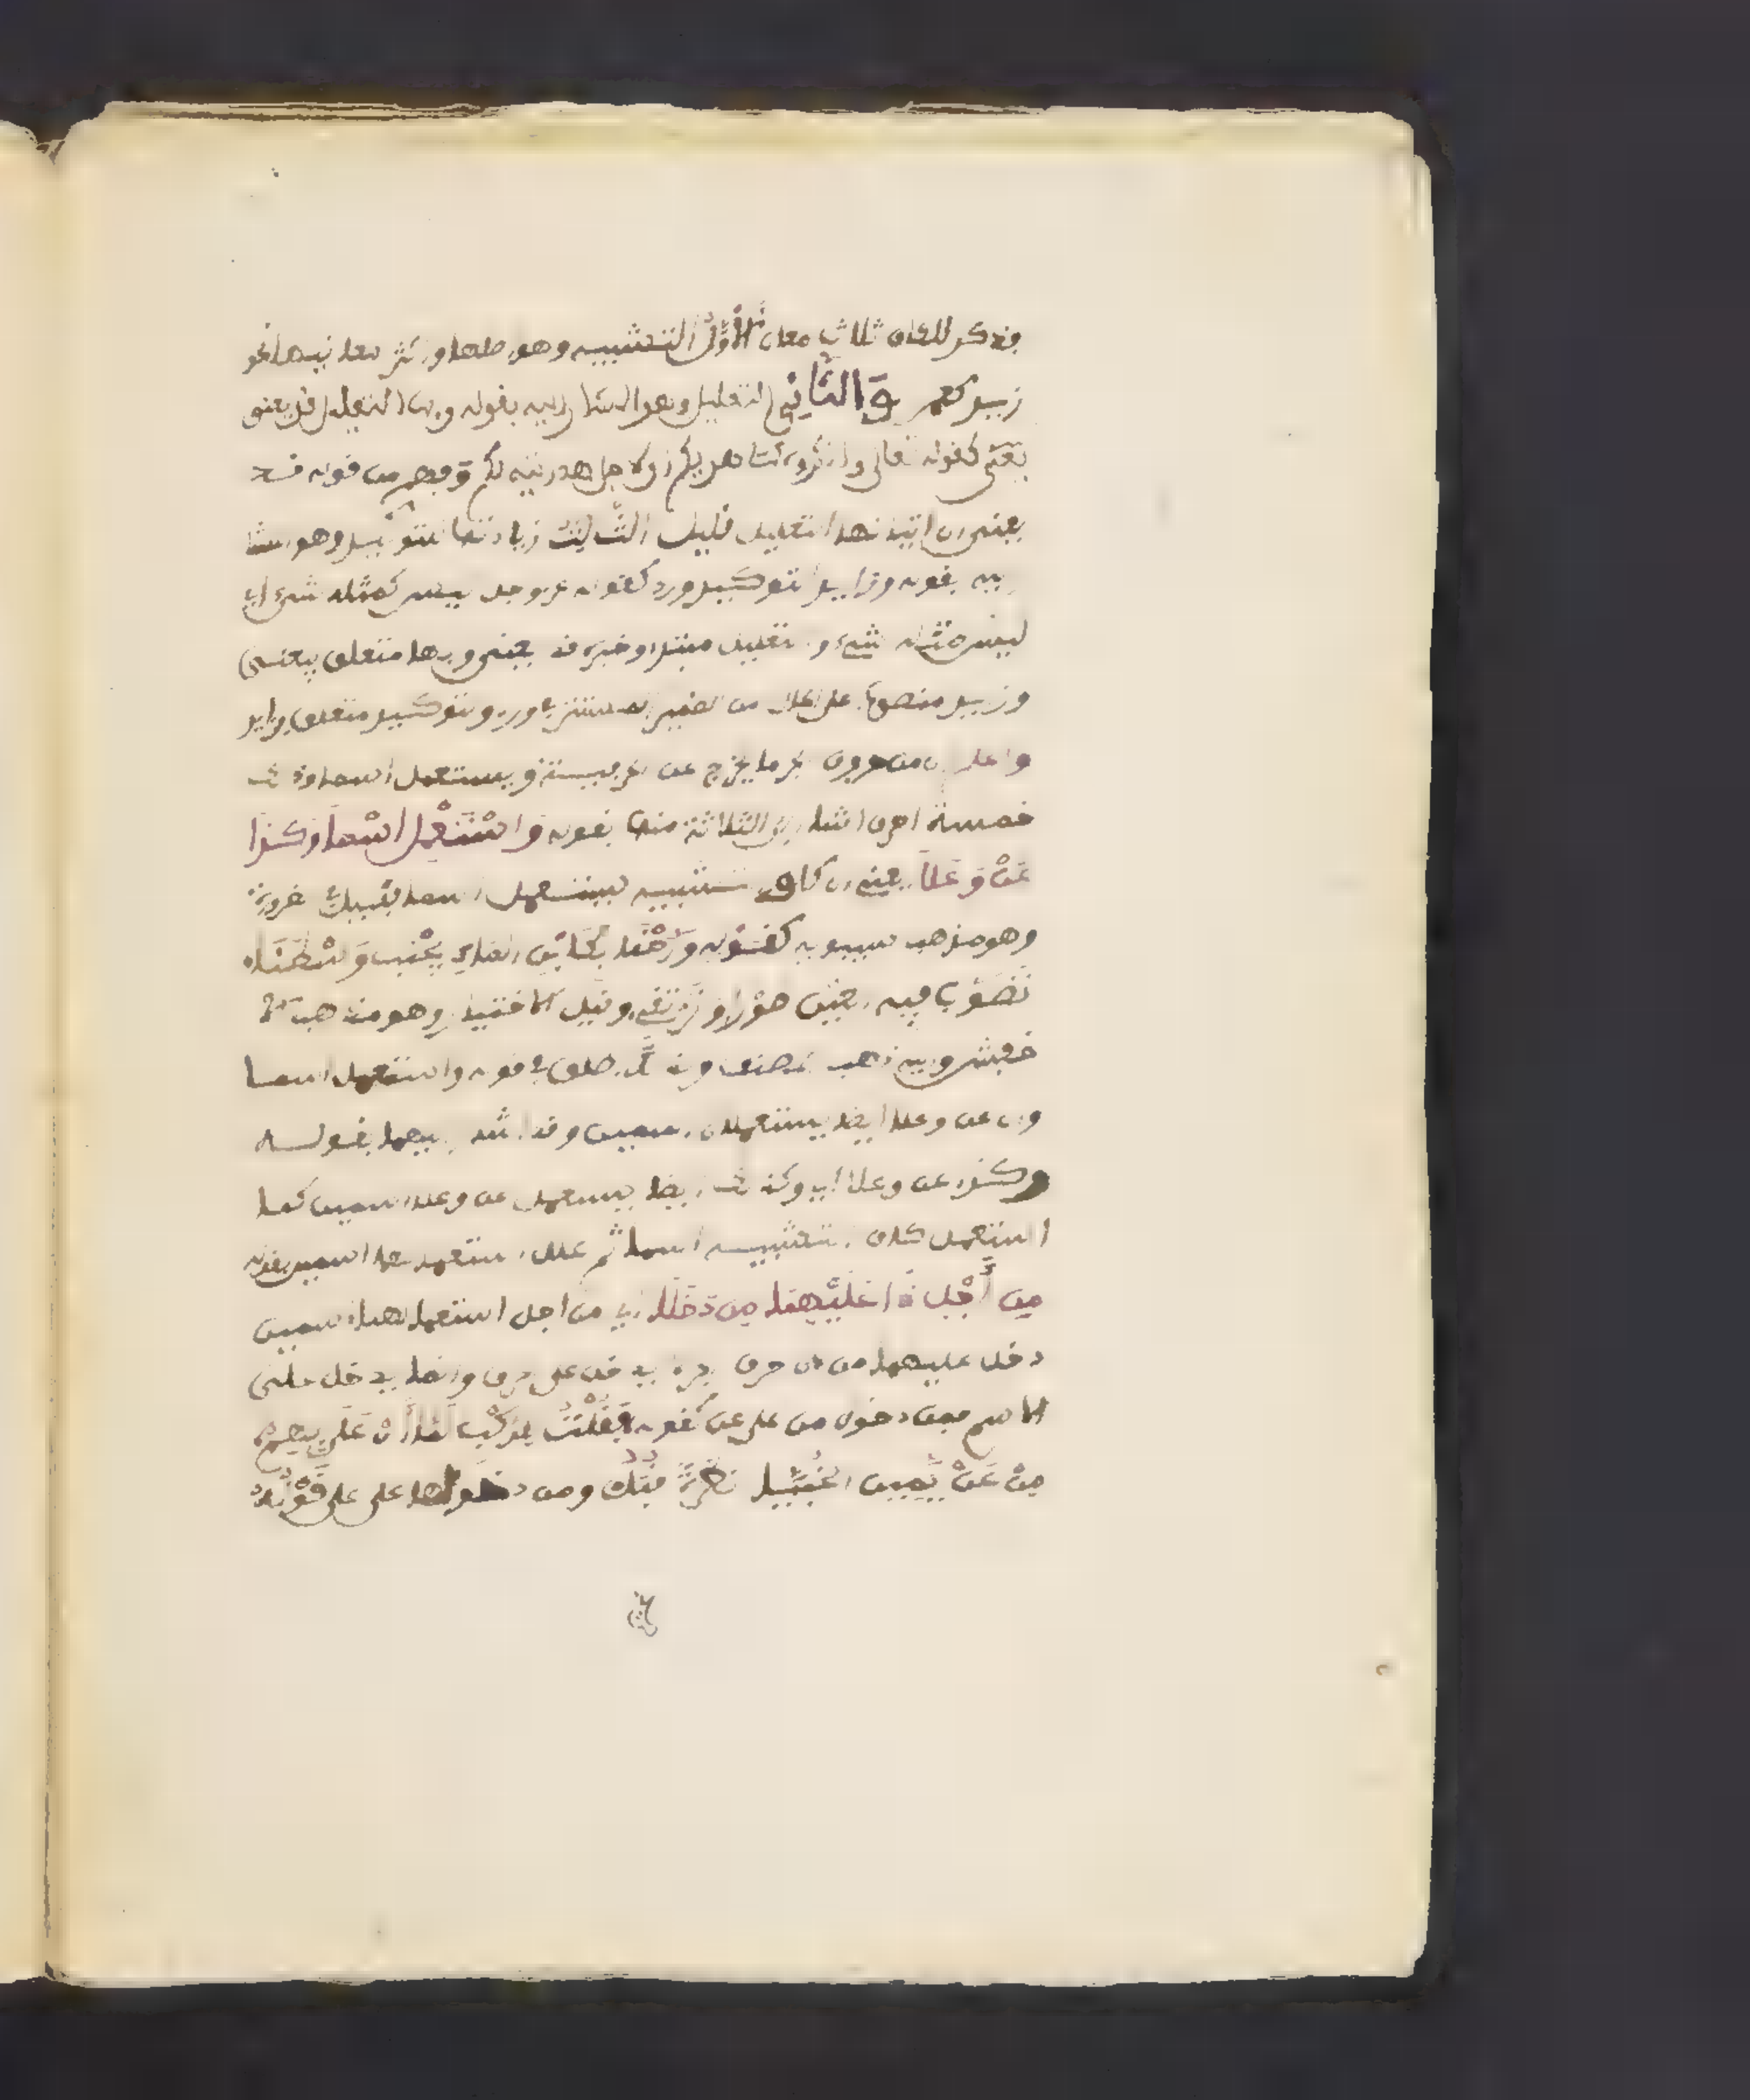 فذكر للكاف ثلاث معان الأَوَّلُ التشبيه وهو اصلها واكثر معانيها نحو
زيد كعمر وَالثَّانِي التعليل وهو المشار اليه بقوله وبها التعليل قد يعنى
يعنى كقوله تعالى واذكروه كما هديكم اي لاجل هدايته لكم وفهم من قوله قد
يعنى ان اتيانها للتعليل قليل الثالث زيادتها للتوكيد وهو المشا
ر اليه بقوله وزايدا لتوكيد ورد كقوله عز وجل ليس كمثله شيء اي
ليس مثله شيء والتعليل مبتدا وخبره قد يعنى وبها متعلق بيعنى
وزايد منصوب على الحال من الضمير المستتر في ورد ولتوكيد متعلق بزايد
واعلم ان من حروف الجر ما يخرج عن الحرفية ويستعمل اسما وذلك
خمسة احرف اشار الى الثلاثة منها بقوله وَاسْتُعْمِلَ اسْماً وَكَذَا
عَنْ وَعَلَى يعنى ان كاف التشبيه يستعمل اسما
وهو مذهب سيبويه كقوله وَرُحْنَا بِكَابْنِ الماءِ يُجْنَبُ وَسْطَنَا
تَصَوَّبُ فيه العين طورا وترتقي وقيل اختيارا وهو مذهب الا
خفش واليه ذهب المصنف ولذلك اطلق في قوله واستعمل اسما
وان عن وعلى ايضا يستعملان اسمين وقد اشار اليهما بقوله
وكذا عن وعلى اي وكذلك ايضا يستعمل عن وعلى اسمين كما
استعمل كاف التشبيه اسما ثم علل استعمالهما اسمين بقوله
مِن أَجْلِ ذَا عَلَيْهِمَا مِن دَخَلَا اي من اجل استعمالهما اسمين
دخل عليهما من لان حرف الجر لا يدخل على حرف وانما يدخل على
الاسم فمن دخول من على عن كقوله فَقُلْتُ لِلرَّكْبِ لَمَّا أَنْ عَلَا بِهِمُ
مِنْ عَنْ يَمِينِ الحُبَيَّا نَظْرَةٌ قَبَلُ ومن دخولها على على قَوْلُهُ